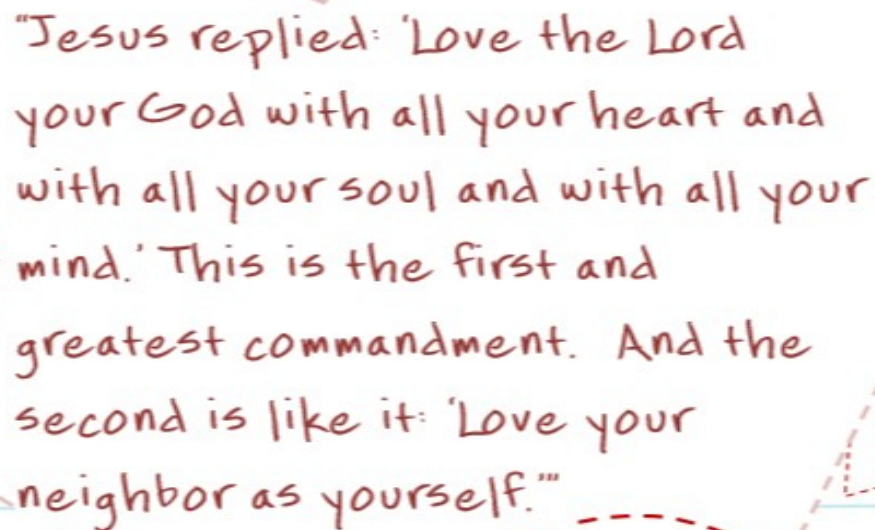 "Jesus replied: 'Love the Lord
your God with all your heart and
with all your soul and with all your
mind.' This is the first and
greatest commandment. And the
second is like it: 'Love your
neighbor as yourself.'"